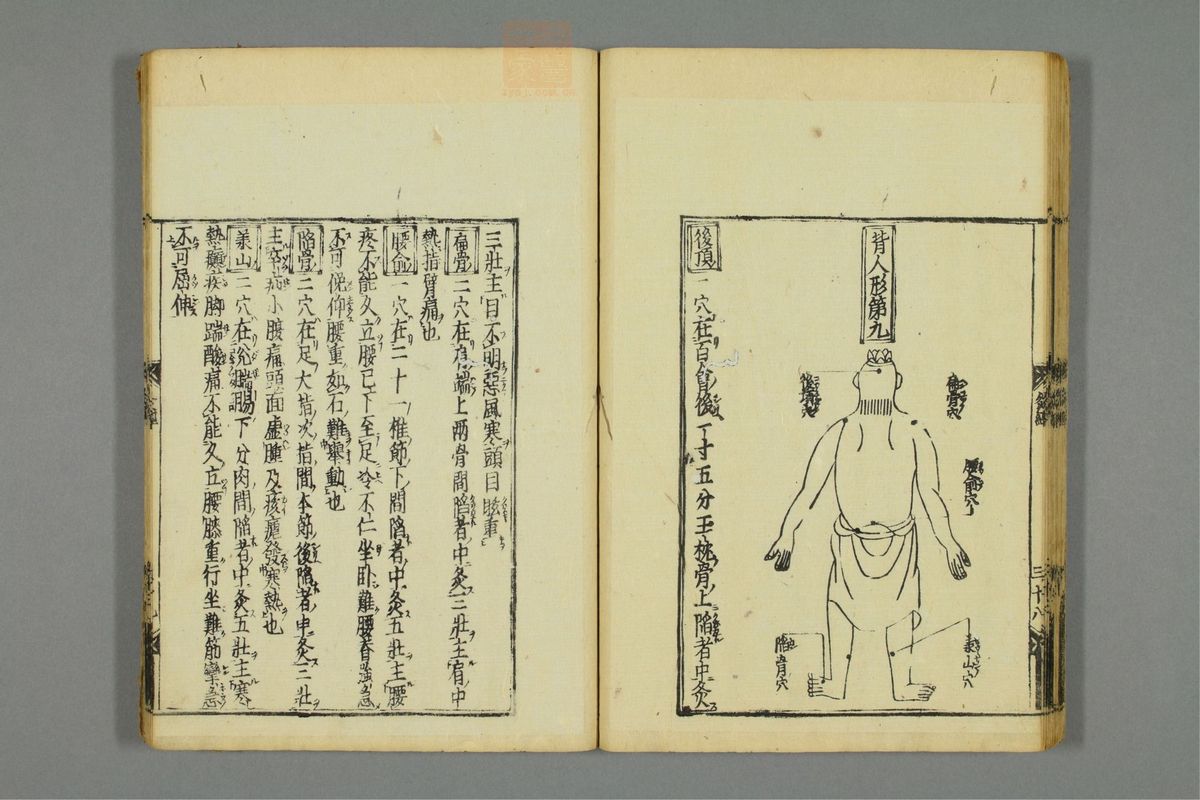 背人形第九
髃骨穴
後頂穴
腰俞穴
承山穴
陷骨穴
後頂 一穴在百會後一寸五分玉枕骨上陷者中灸
三十八
三壯主目不明惡風寒頭目眩重
髃骨 二穴在肩端上兩骨間陷者中灸三壯主肩中
熱指臂痛也
腰俞 一穴在二十一椎節下間陷者中灸五壯主腰
疼不能久立腰已下至足冷不仁坐卧難腰脊强急
不可俛仰腰重如石難舉動也
陷骨 二穴在足大指次指間本節後陷者中灸三壯
主卒疝小腹痛頭面虛腫及痎瘧發寒熱也
承山 二穴在兊腨腸下分肉間陷者中灸五壯主寒
熱癲疾脚踹酸痛不能久立腰膝重行坐難筋攣急
不可屈伸